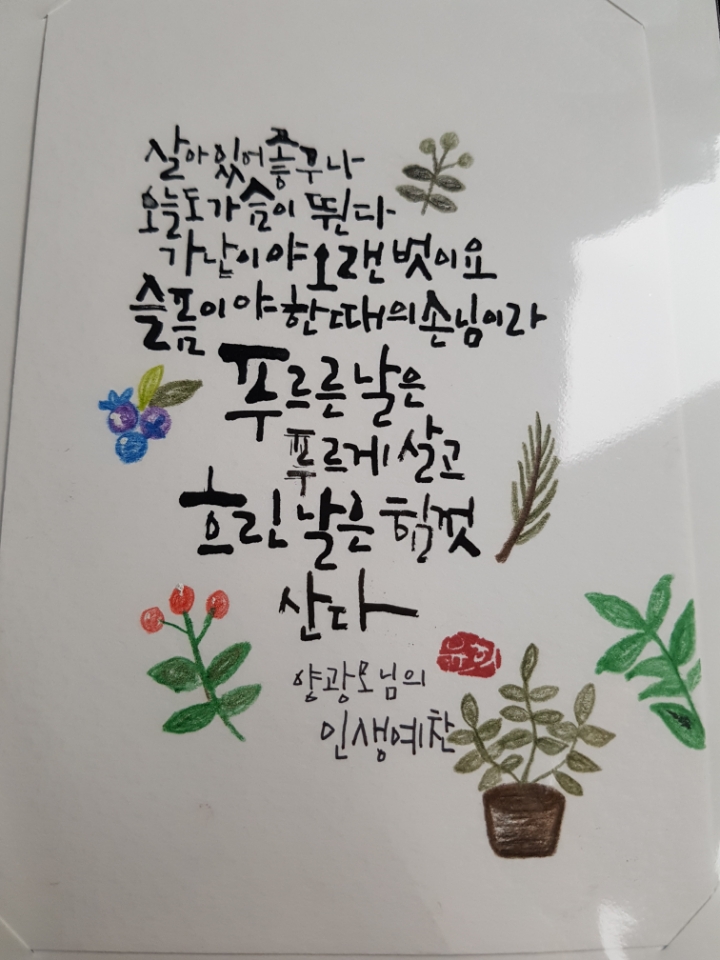 살아있어 좋구나
오늘도 가슴이 뛴다
가난이야 오랜 벗이요
슬픔이야 한때의 손님이라
푸르른 날은
푸르게 살고
흐린 날은 힘껏
산다
유희
양광모님의
인생예찬